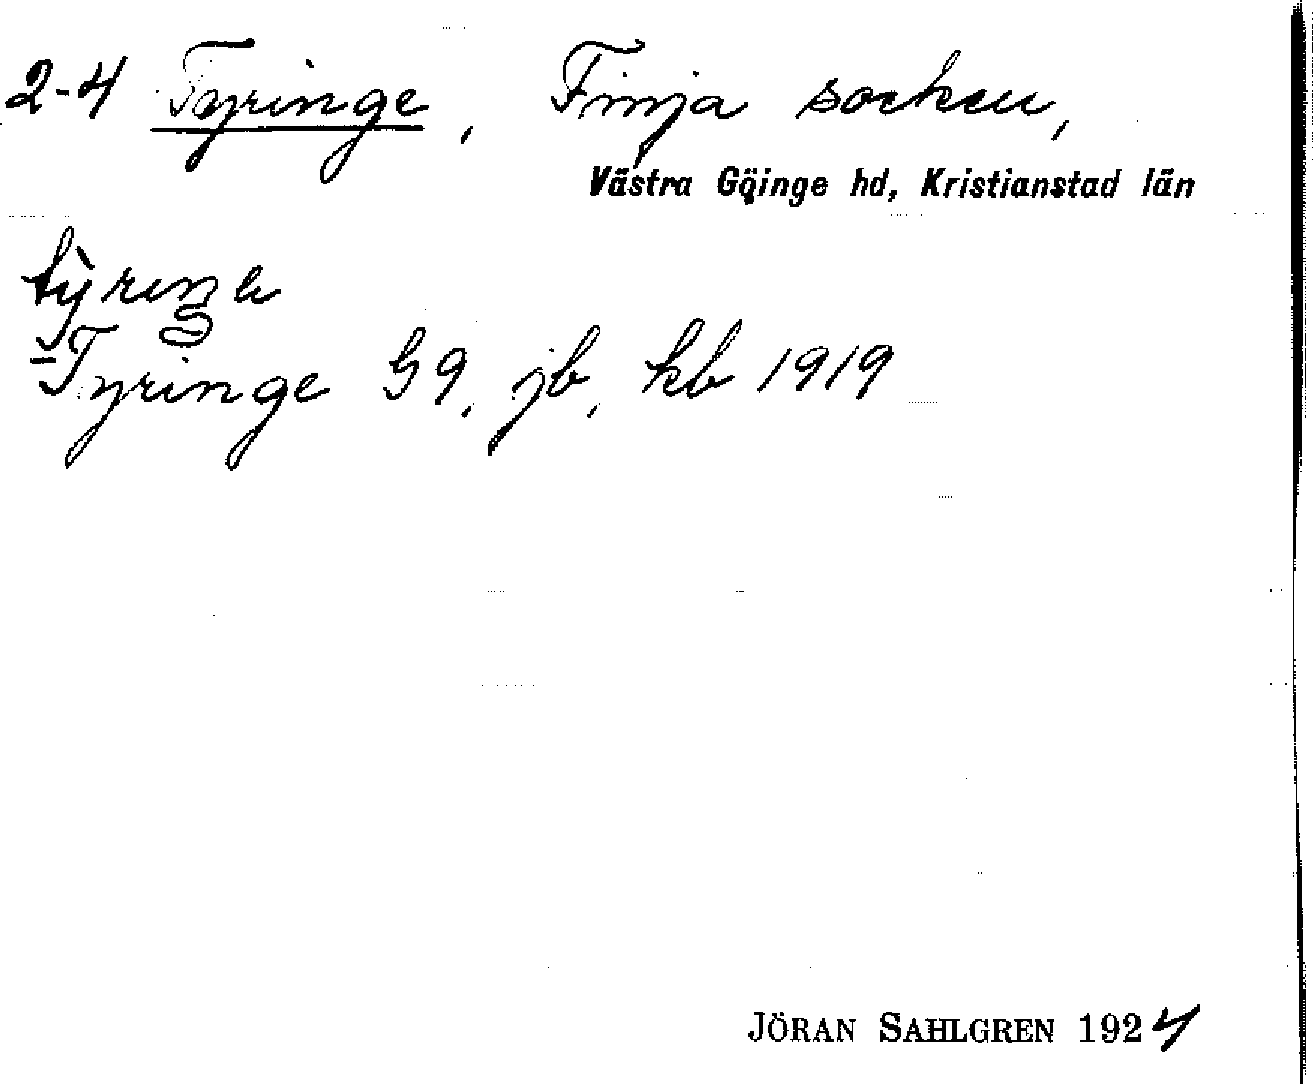 2-4 Tyringe, Finja socken,
Västra Göinge hd, Kristianstad län
Tyringe G9, jb, kb 1919
JÖRAN SAHLGREN 1924